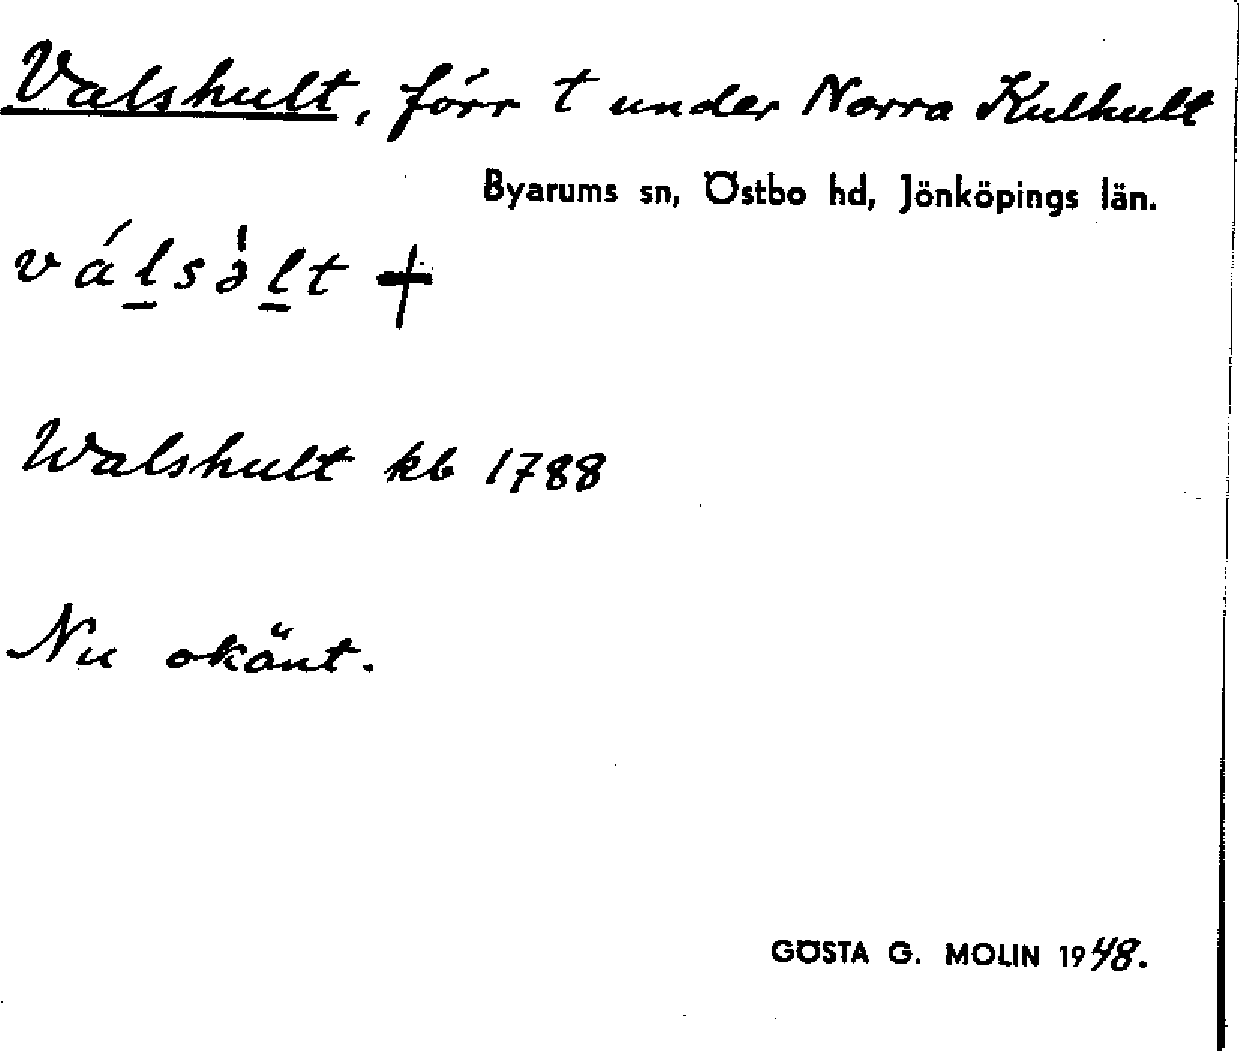 Valshult, förr t under Norra Kulhult
Byarums sn, Östbo hd, Jönköpings län.
vál̲sə̀l̲t +
Walshult kb 1788
Nu okänt.
GÖSTA G. MOLIN 1948.